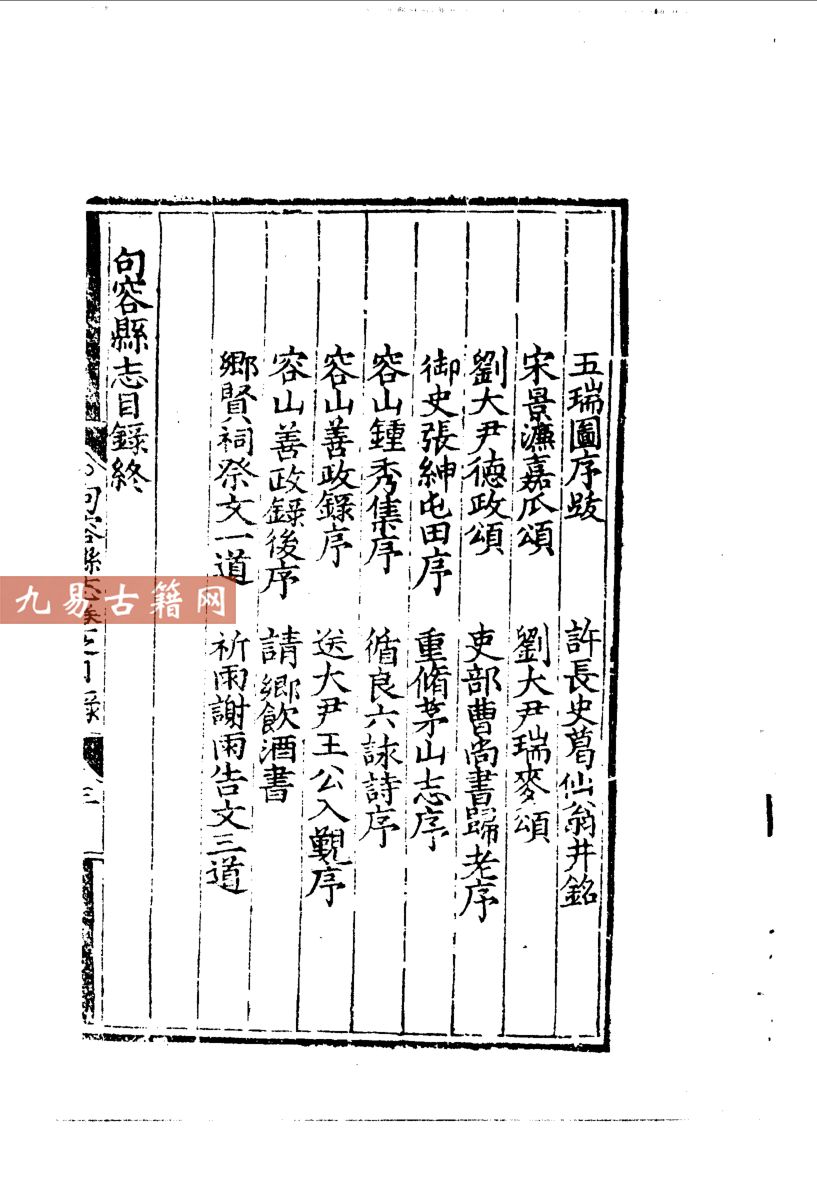 五瑞圖序跋　許長史葛仙翁井銘
宋景濂嘉瓜頌　劉大尹瑞麥頌
劉大尹德政頌　吏部曹尚書歸老序
御史張紳屯田序　重脩茅山志序
容山鍾秀集序　循良六詠詩序
容山善政錄序　送大尹王公入覲序
容山善政錄後序　請鄉飲酒書
鄉賢祠祭文一道　祈雨謝雨告文三道
句容縣志目錄終
句容縣志卷之目錄　三
九易古籍网